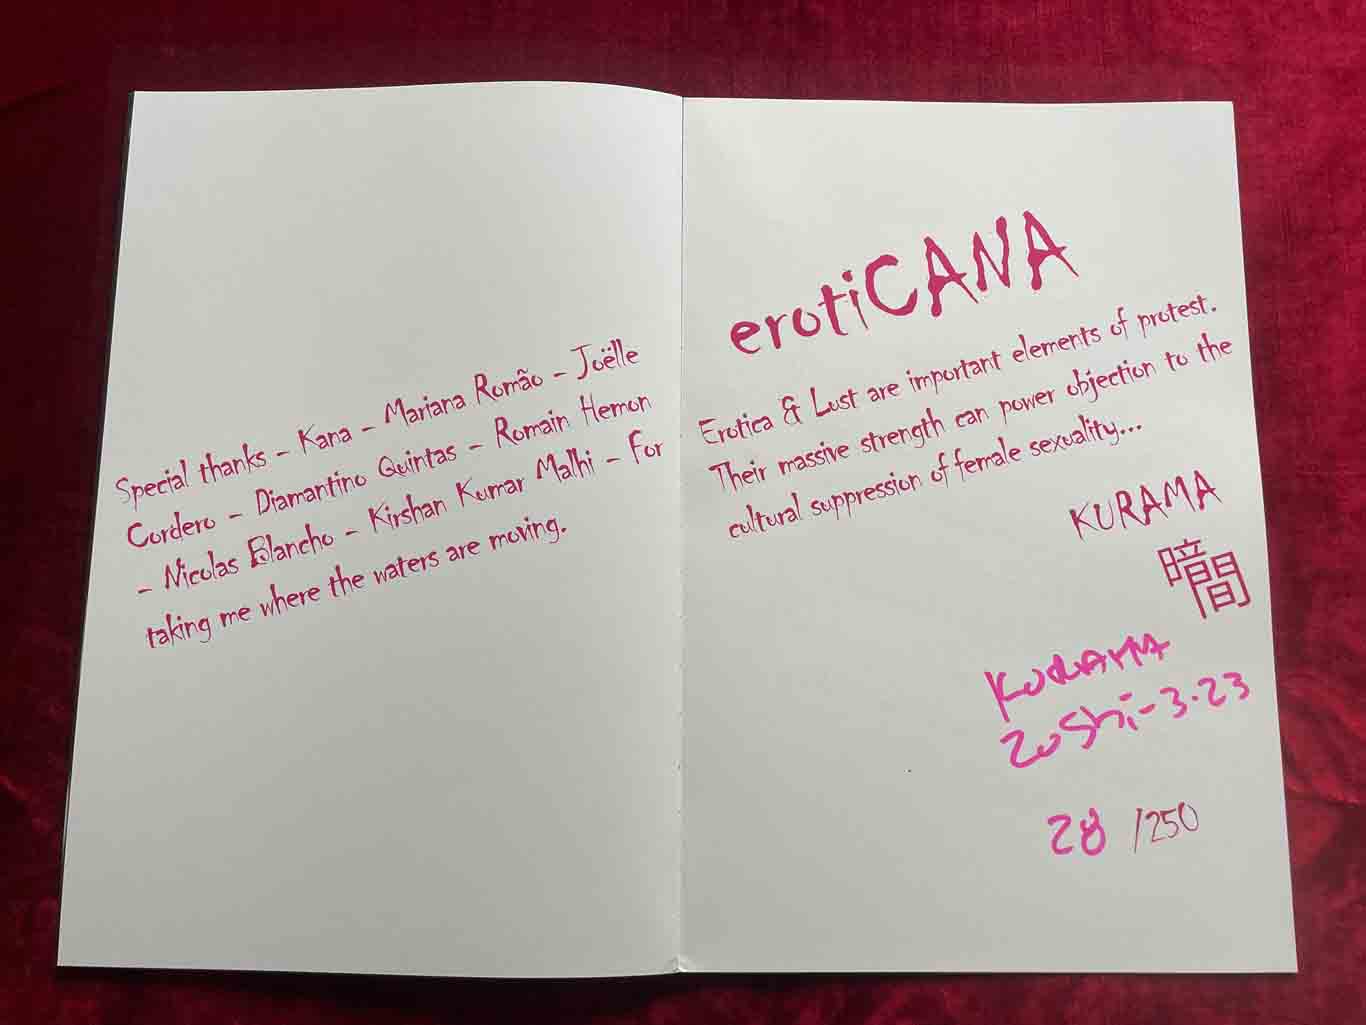 Special thanks - Kana - Mariana Romão - Joëlle
Cordero - Diamantino Quintas - Romain Hemon
- Nicolas Blancho - Kirshan Kumar Malhi - For
taking me where the waters are moving.
erotiCANA
Erotica & Lust are important elements of protest.
Their massive strength can power objection to the
cultural suppression of female sexuality...
KURAMA
暗間
KURAMA
ZoShi-3.23
28 /250